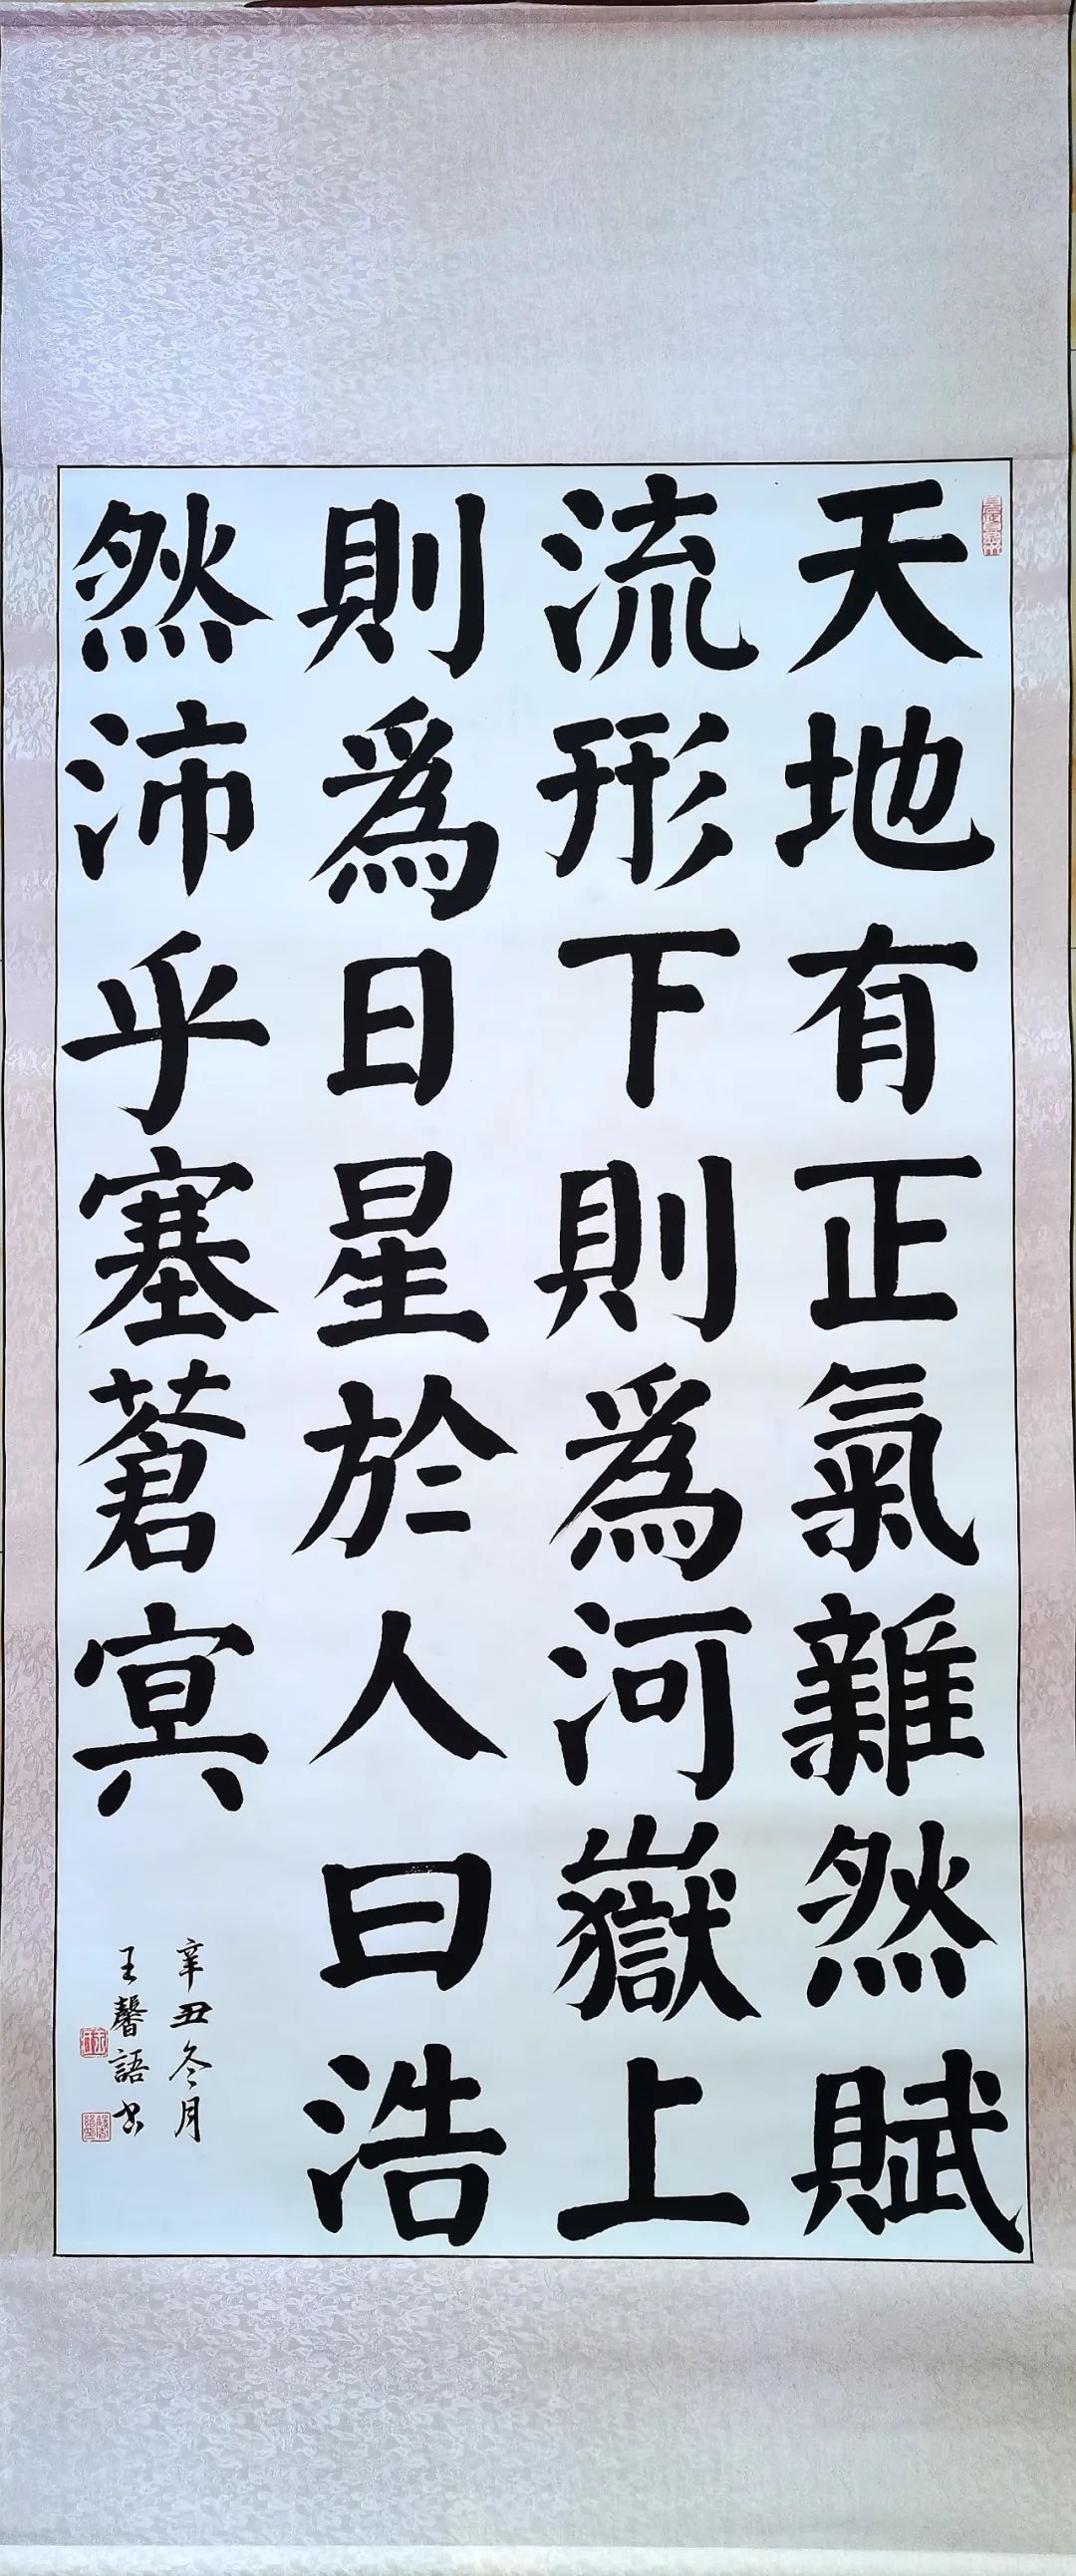 天地有正氣雜然賦
流形下則爲河嶽上
則爲日星於人曰浩
然沛乎塞蒼冥
辛丑冬月
王馨語书